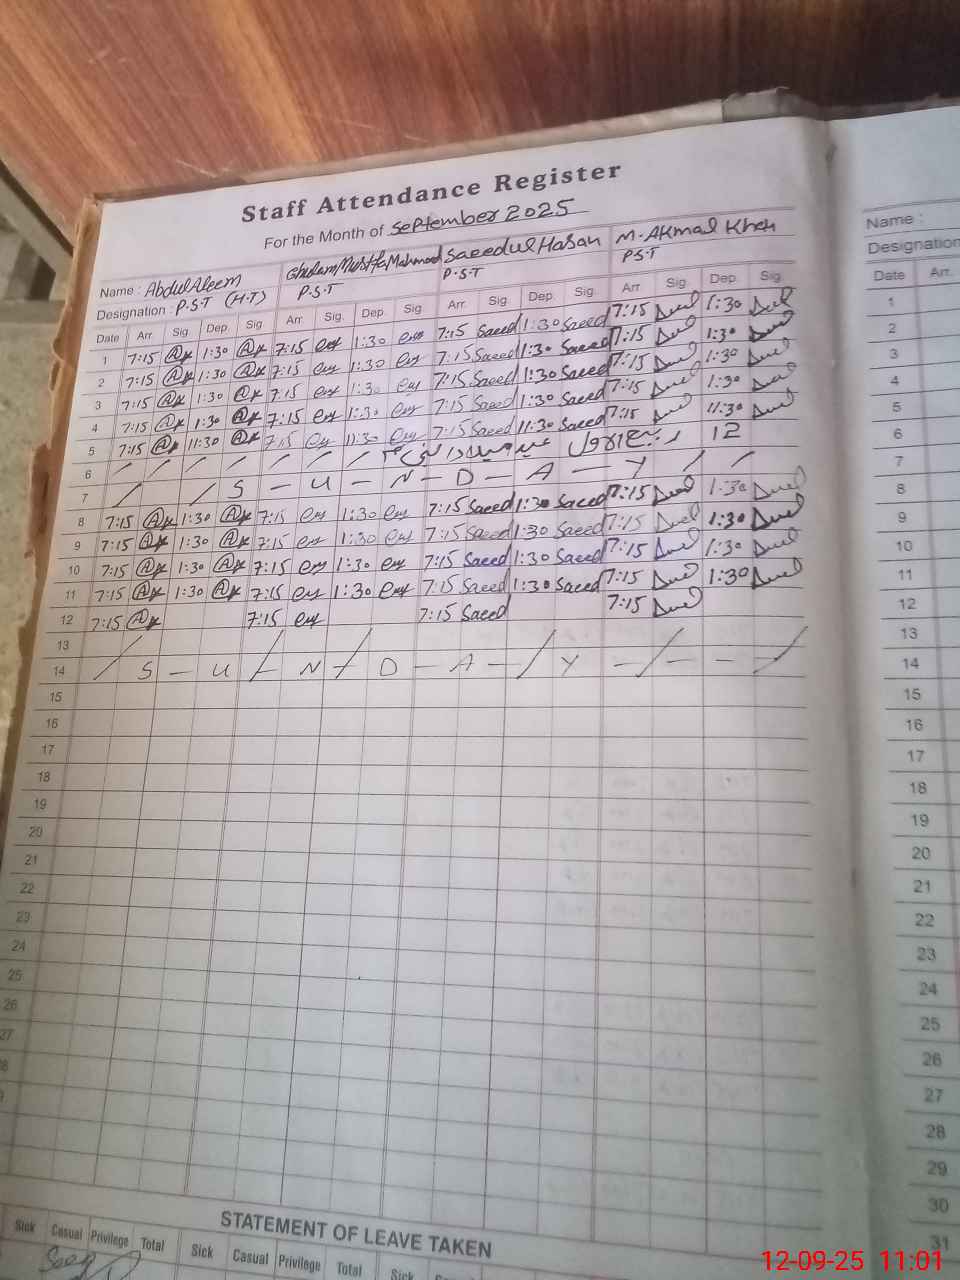 Staff Attendance Register
For the Month of September 2025
Name : Abdul Aleem Ghulam Mustfa Mahmood Saeedul Hasan M. Akmal Khan
Designation : P.S.T (H.T) P.S.T P.S.T P.S.T
Date Arr. Sig. Dep. Sig. Arr. Sig. Dep. Sig. Arr. Sig. Dep. Sig. Arr. Sig. Dep. Sig.
1 7:15 1:30 7:15 1:30 7:15 Saeed 1:30 Saeed 7:15 1:30
2 7:15 1:30 7:15 1:30 7:15 Saeed 1:30 Saeed 7:15 1:30
3 7:15 1:30 7:15 1:30 7:15 Saeed 1:30 Saeed 7:15 1:30
4 7:15 1:30 7:15 1:30 7:15 Saeed 1:30 Saeed 7:15 1:30
5 7:15 11:30 7:15 11:30 7:15 Saeed 11:30 Saeed 7:15 11:30
6 12 ربیع الاول عید میلاد النبی
7 S - U - N - D - A - Y
8 7:15 1:30 7:15 1:30 7:15 Saeed 1:30 Saeed 7:15 1:30
9 7:15 1:30 7:15 1:30 7:15 Saeed 1:30 Saeed 7:15 1:30
10 7:15 1:30 7:15 1:30 7:15 Saeed 1:30 Saeed 7:15 1:30
11 7:15 1:30 7:15 1:30 7:15 Saeed 1:30 Saeed 7:15 1:30
12 7:15 7:15 7:15 Saeed 7:15
13
14 S - U - N - D - A - Y - - -
15
16
17
18
19
20
21
22
23
24
25
26
27
8
STATEMENT OF LEAVE TAKEN
Sick Casual Privilege Total Sick Casual Privilege Total Sick
Name :
Designation
Date Arr.
1
2
3
4
5
6
7
8
9
10
11
12
13
14
15
16
17
18
19
20
21
22
23
24
25
26
27
28
29
30
31
12-09-25 11:01